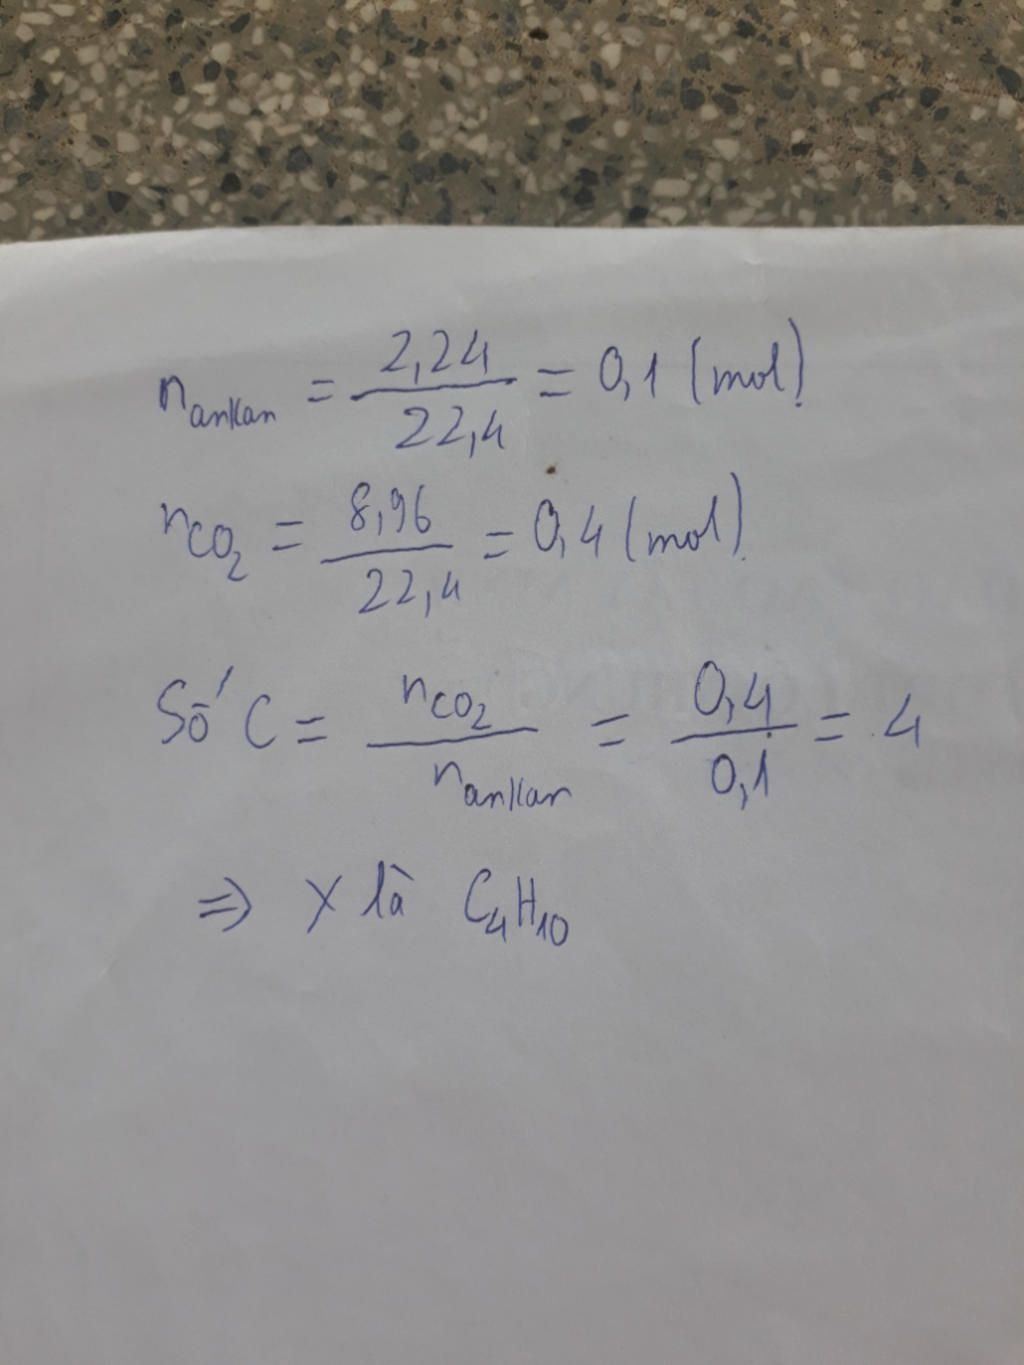 n ankan = 2,24 / 22,4 = 0,1 (mol)
nCO2 = 8,96 / 22,4 = 0,4 (mol)
Số C = nCO2 / n ankan = 0,4 / 0,1 = 4
=> X là C4H10